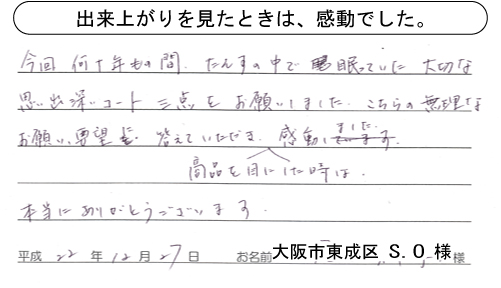 出来上がりを見たときは、感動でした。
今回 何十年もの間、たんすの中で 眠っていた 大切な
思い出深いコート 三点を お願いしました。こちらの無理な
お願い、要望に 答えていただき、感動しています。
ました。
商品を目にした時は、
本当にありがとうございます。
平成 22 年 12 月 27 日 お名前 大阪市東成区 S.O 様 様